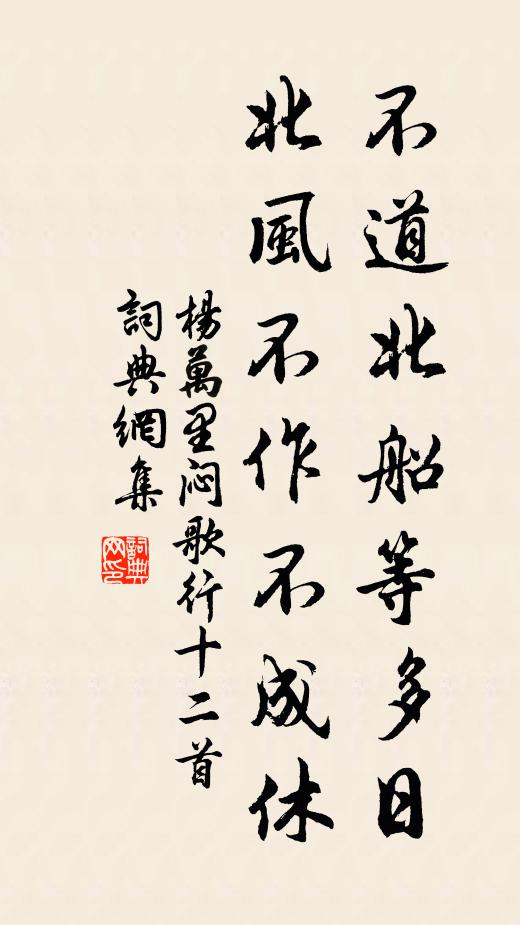 不道北船等多日
北風不作不成休
楊萬里悶歌行十二首
詞典網集
詞典網印